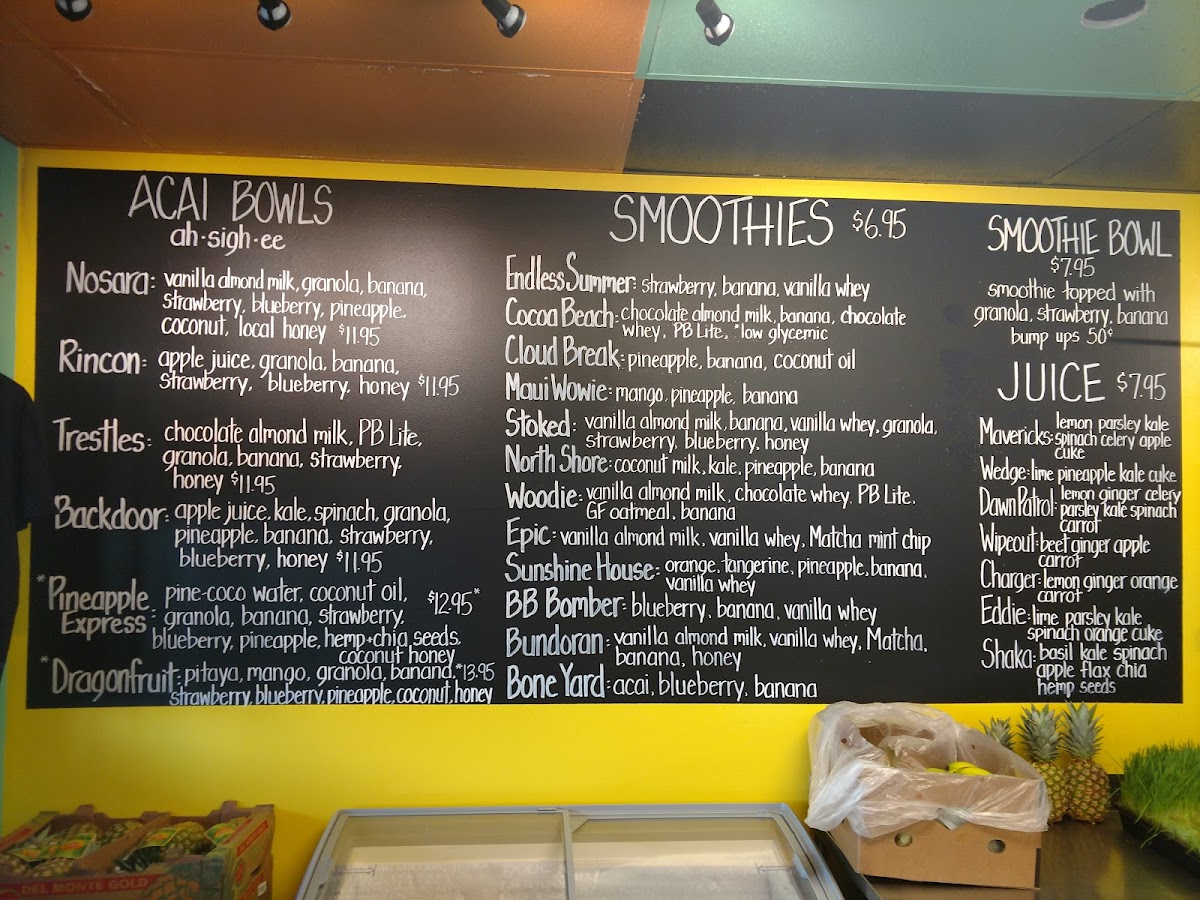 ACAI BOWLS
ah·sigh·ee
Nosara: vanilla almond milk, granola, banana,
strawberry, blueberry, pineapple,
coconut, local honey $11.95
Rincon: apple juice, granola, banana,
strawberry, blueberry, honey $11.95
Trestles: chocolate almond milk, PB Lite,
granola, banana, strawberry,
honey $11.95
Backdoor: apple juice, kale, spinach, granola,
pineapple, banana, strawberry,
blueberry, honey $11.95
*Pineapple Express: pine-coco water, coconut oil, $12.95*
granola, banana, strawberry,
blueberry, pineapple, hemp+chia seeds,
coconut honey
*Dragonfruit: pitaya, mango, granola, banana, *13.95
strawberry, blueberry, pineapple, coconut, honey
SMOOTHIES $6.95
Endless Summer: strawberry, banana, vanilla whey
Cocoa Beach: chocolate almond milk, banana, chocolate
whey, PB Lite, *low glycemic
Cloud Break: pineapple, banana, coconut oil
Maui Wowie: mango, pineapple, banana
Stoked: vanilla almond milk, banana, vanilla whey, granola,
strawberry, blueberry, honey
North Shore: coconut milk, kale, pineapple, banana
Woodie: vanilla almond milk, chocolate whey, PB Lite,
GF oatmeal, banana
Epic: vanilla almond milk, vanilla whey, Matcha mint chip
Sunshine House: orange, tangerine, pineapple, banana,
vanilla whey
BB Bomber: blueberry, banana, vanilla whey
Bundoran: vanilla almond milk, vanilla whey, Matcha,
banana, honey
Bone Yard: acai, blueberry, banana
SMOOTHIE BOWL
$7.95
smoothie topped with
granola, strawberry, banana
bump ups 50¢
JUICE $7.95
Mavericks: lemon parsley kale
spinach celery apple
cuke
Wedge: lime pineapple kale cuke
Dawn Patrol: lemon ginger celery
parsley kale spinach
carrot
Wipeout: beet ginger apple
carrot
Charger: lemon ginger orange
carrot
Eddie: lime parsley kale
spinach orange cuke
Shaka: basil kale spinach
apple flax chia
hemp seeds
DEL MONTE GOLD